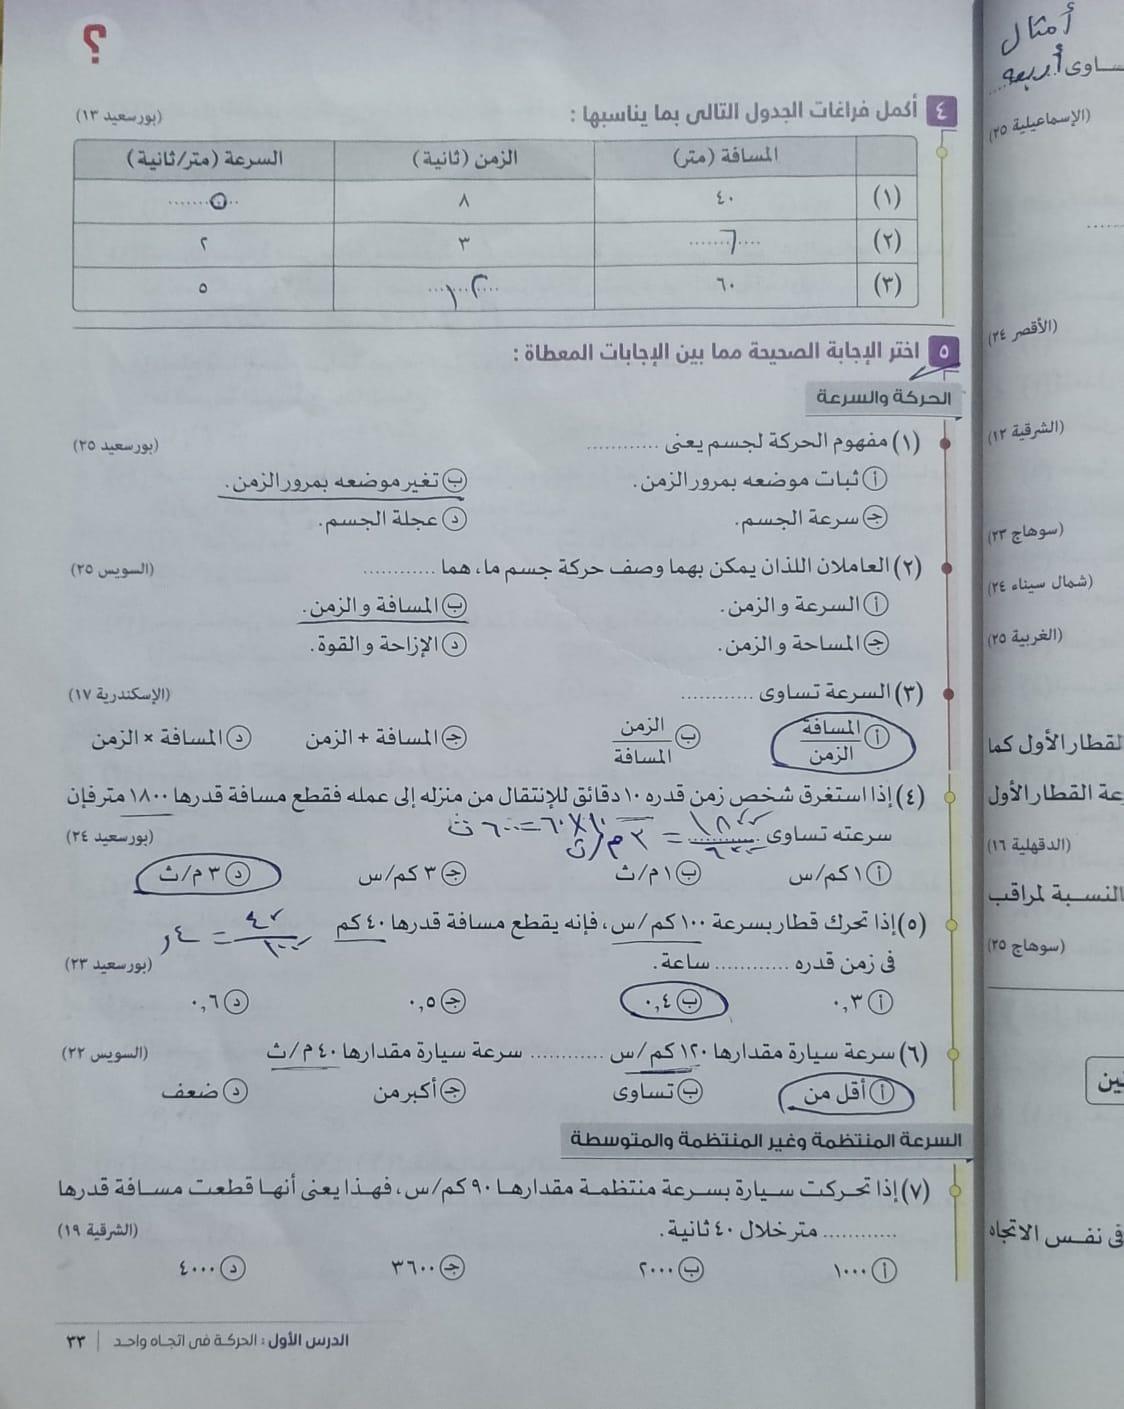 ؟
٤ أكمل فراغات الجدول التالى بما يناسبها : (بورسعيد ١٣)
المسافة (متر) الزمن (ثانية) السرعة (متر/ثانية)
(١) ٤٠ ٨ ٥
(٢) ٦ ٣ ٢
(٣) ٦٠ ١٢ ٥
٥ اختر الإجابة الصحيحة مما بين الإجابات المعطاة :
الحركة والسرعة
(١) مفهوم الحركة لجسم يعنى ............ (بورسعيد ٢٥)
أ ثبات موضعه بمرور الزمن. ب تغير موضعه بمرور الزمن.
ج سرعة الجسم. د عجلة الجسم.
(٢) العاملان اللذان يمكن بهما وصف حركة جسم ما، هما ............ (السويس ٢٥)
أ السرعة والزمن. ب المسافة والزمن.
ج المساحة والزمن. د الإزاحة والقوة.
(٣) السرعة تساوى ............ (الإسكندرية ١٧)
أ المسافة / الزمن ب الزمن / المسافة ج المسافة + الزمن د المسافة × الزمن
(٤) إذا استغرق شخص زمن قدره ١٠ دقائق للإنتقال من منزله إلى عمله فقطع مسافة قدرها ١٨٠٠ متر فإن
سرعته تساوى ١٨٠٠ / ٦٠٠ = ٣ م/ث ١٠ × ٦٠ = ٦٠٠ ث (بورسعيد ٢٤)
أ ١ كم/س ب ١ م/ث ج ٣ كم/س د ٣ م/ث
(٥) إذا تحرك قطار بسرعة ١٠٠ كم/س، فإنه يقطع مسافة قدرها ٤٠ كم ٤٠ / ١٠٠ = ٤,
فى زمن قدره ............ ساعة. (بورسعيد ٢٣)
أ ٠,٣ ب ٠,٤ ج ٠,٥ د ٠,٦
(٦) سرعة سيارة مقدارها ١٢٠ كم/س ............ سرعة سيارة مقدارها ٤٠ م/ث (السويس ٢٢)
أ أقل من ب تساوى ج أكبر من د ضعف
السرعة المنتظمة وغير المنتظمة والمتوسطة
(٧) إذا تحركت سيارة بسرعة منتظمة مقدارها ٩٠ كم/س، فهذا يعنى أنها قطعت مسافة قدرها
............ متر خلال ٤٠ ثانية. (الشرقية ١٩)
أ ١٠٠٠ ب ٢٠٠٠ ج ٣٦٠٠ د ٤٠٠٠
الدرس الأول : الحركة فى اتجاه واحد | ٣٣
أمثال
ساوى أربعة
(الإسماعيلية ٢٥)
(الأقصر ٢٤)
(الشرقية ١٢)
(سوهاج ٢٣)
(شمال سيناء ٢٤)
(الغربية ٢٥)
لقطار الأول كما
عة القطار الأول
(الدقهلية ١٦)
النسبة لمراقب
(سوهاج ٢٥)
ين
فى نفس الاتجاه